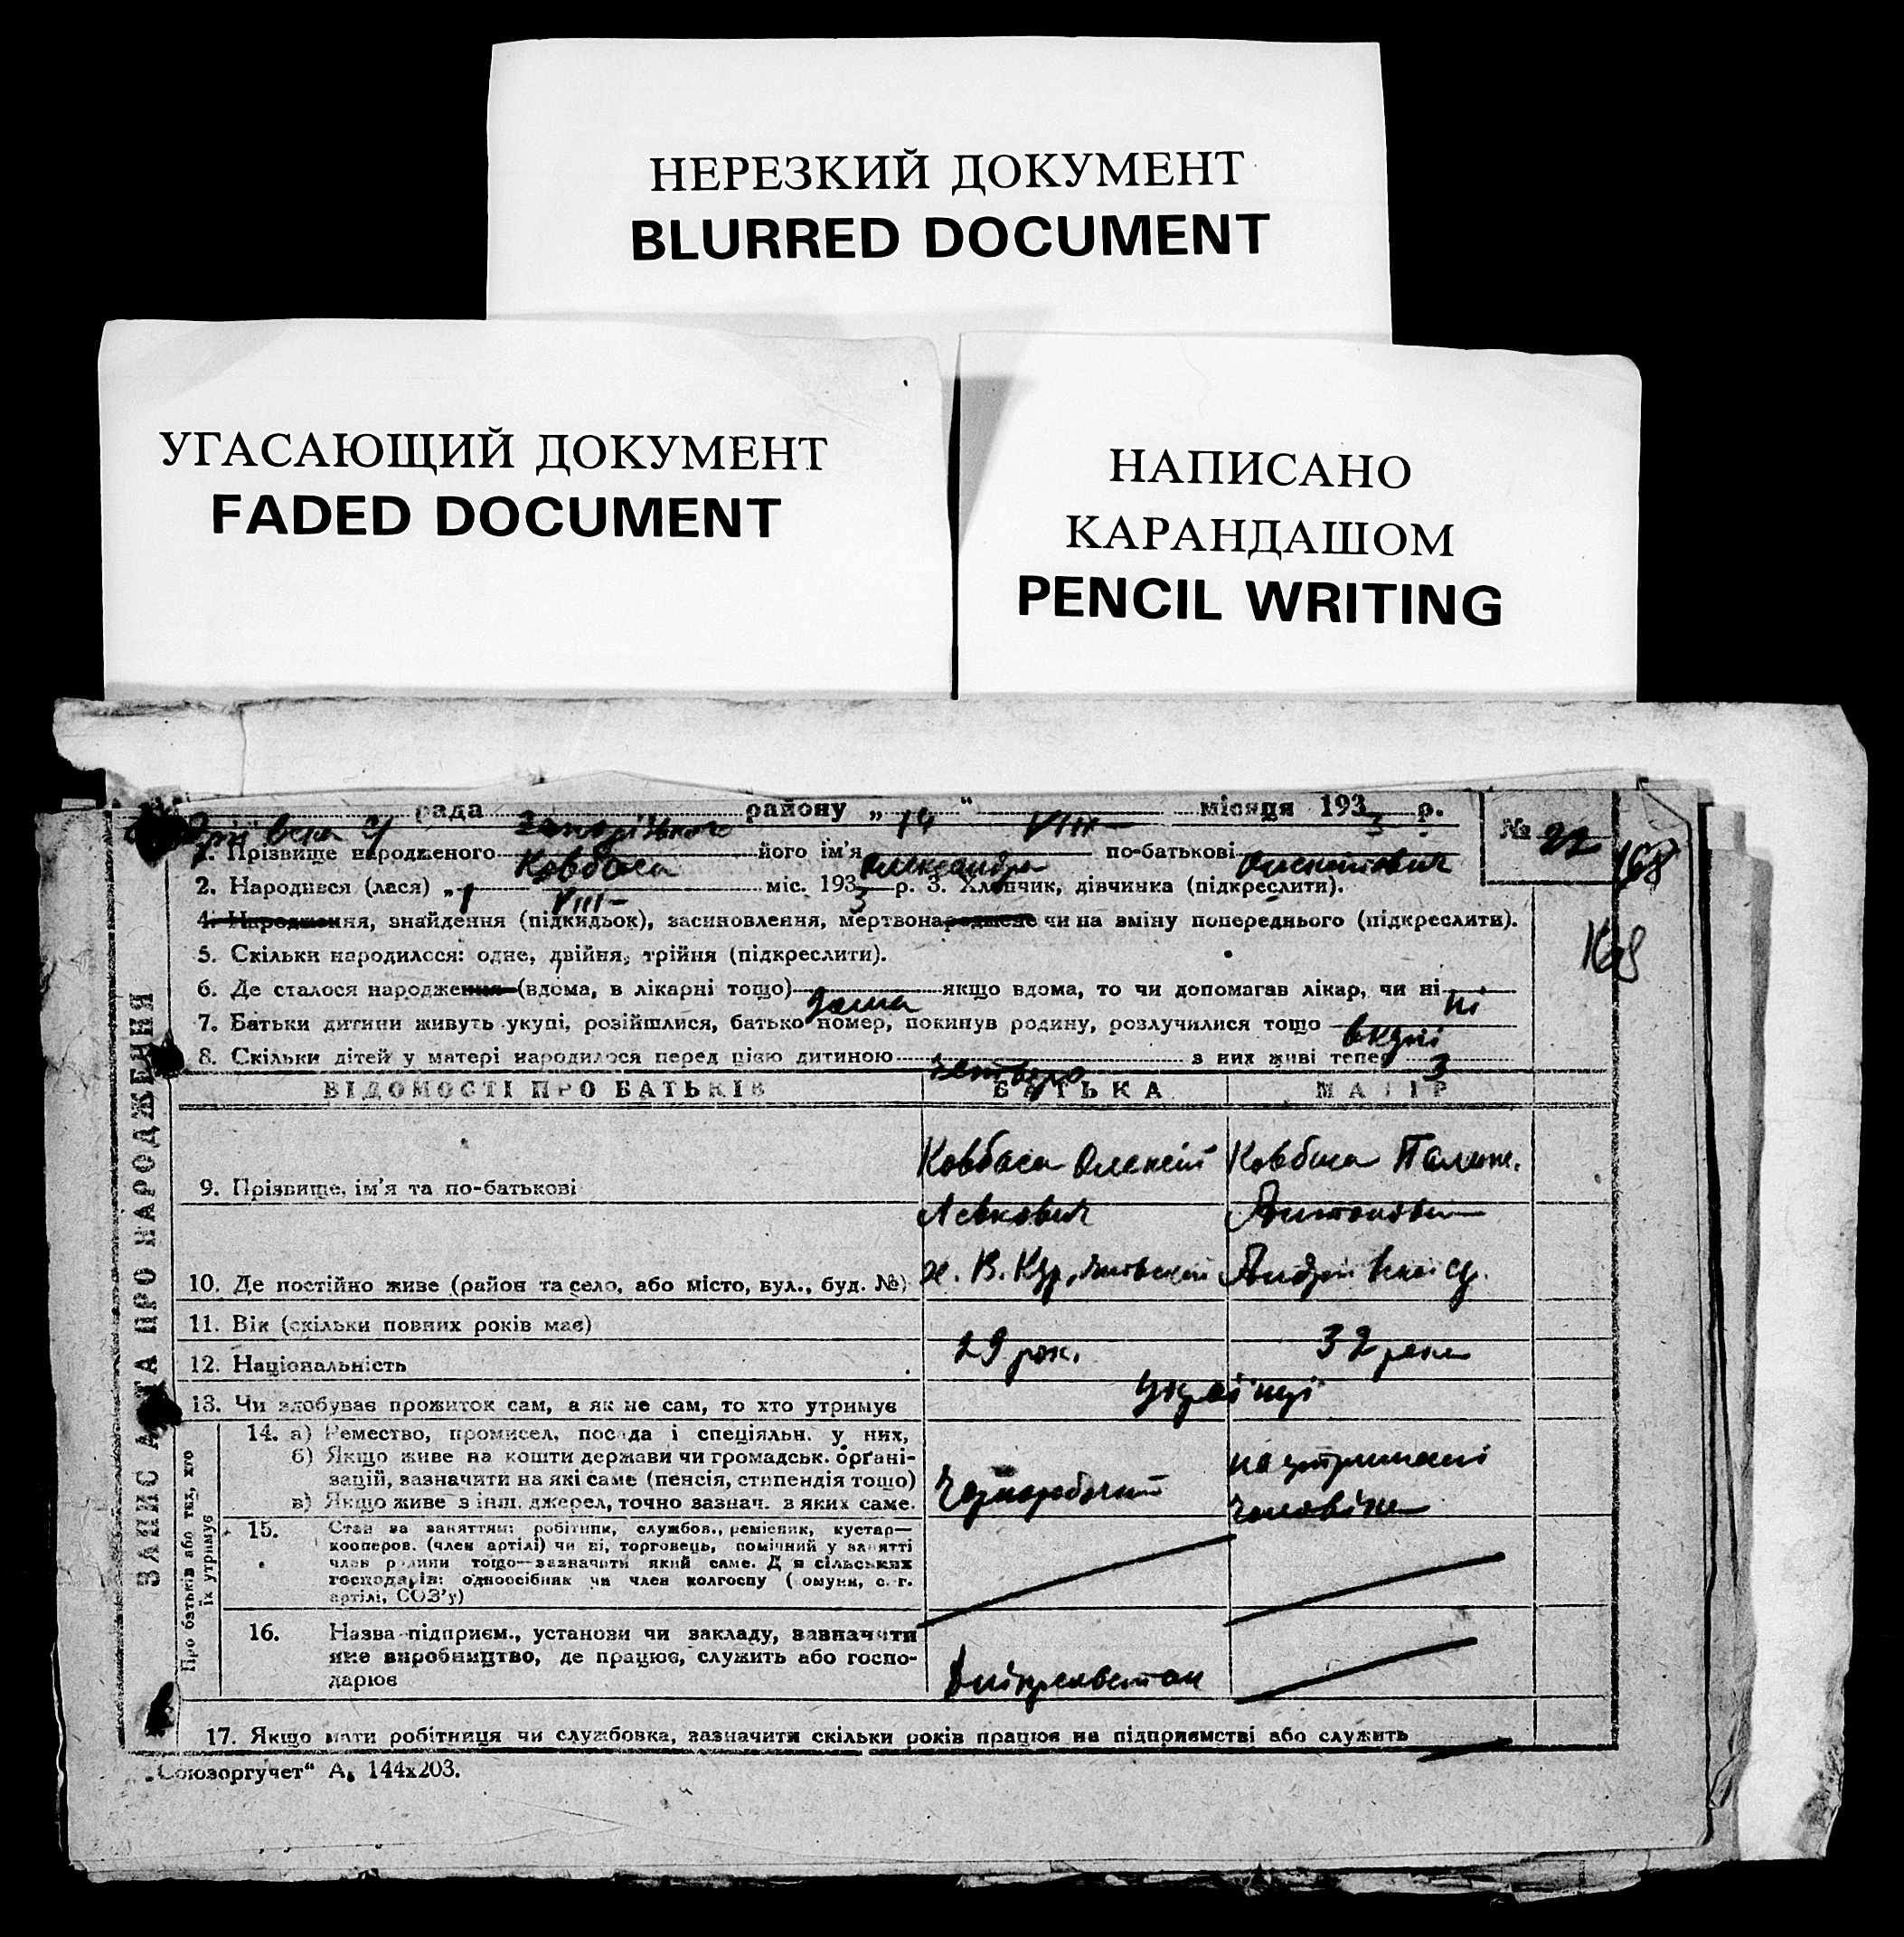 НЕРЕЗКИЙ ДОКУМЕНТ
BLURRED DOCUMENT
УГАСАЮЩИЙ ДОКУМЕНТ
FADED DOCUMENT
НАПИСАНО
КАРАНДАШОМ
PENCIL WRITING
рада Запорізького району „ 14 “ VIII місяця 1933 р.
№ 22
168
1. Прізвище народженого Ковбаса його ім'я Олександр по-батькові Олексійович
2. Народився (лася) „ 1 VIII міс. 1933 р. 3. Хлопчик, дівчинка (підкреслити).
4. Народження, знайдення (підкидьок), засиновлення, мертвонароджене чи на зміну попереднього (підкреслити).
5. Скільки народилося: одне, двійня, трійня (підкреслити).
6. Де сталося народження (вдома, в лікарні тощо) дома якщо вдома, то чи допомагав лікар, чи ні ні
7. Батьки дитини живуть укупі, розійшлися, батько помер, покинув родину, розлучилися тощо вкупі
8. Скільки дітей у матері народилося перед цією дитиною четверо з них живі тепер 3
ЗАПИС АКТА ПРО НАРОДЖЕННЯ
ВІДОМОСТІ ПРО БАТЬКІВ БАТЬКА МАТІР
9. Прізвище, ім'я та по-батькові
Ковбаса Олексій
Левкович
Ковбаса
10. Де постійно живе (район та село, або місто, вул., буд. №)
11. Вік (скільки повних років має)
29 рок. 32 роки
12. Національність
Українці
13. Чи здобуває прожиток сам, а як не сам, то хто утримує
Про батьків або тих, хто їх утримує
14. а) Ремество, промисел, посада і спеціяльн. у них,
б) Якщо живе на кошти держави чи громадськ. орґані-
зацій, зазначити на які саме (пенсія, стипендія тощо)
в) Якщо живе з інш. джерел, точно зазнач. з яких саме.
Чорноробочий
на утриманні
чоловіка
15. Стан за заняттям: робітник, службов., ремісник, кустар—
кооперов. (член артілі) чи ні, торговець, помічний у занятті
член родини тощо—зазначити який саме. Для сільських
господарів: одноосібник чи член колгоспу (комуни, с.-г.
артілі, СОЗ'у)
16. Назва підприєм., установи чи закладу, зазначити
яке виробництво, де працює, служить або госпо-
дарює
17. Якщо мати робітниця чи службовка, зазначити скільки років працює на підприємстві або служить
„Союзоргучет“ А₆ 144х203.